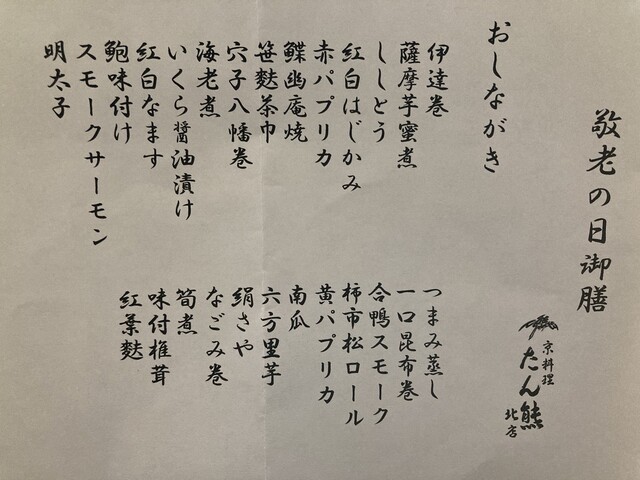 敬老の日御膳
京料理
たん熊
北店
おしながき
伊達巻
薩摩芋蜜煮
ししとう
紅白はじかみ
赤パプリカ
鰈幽庵焼
笹麩茶巾
穴子八幡巻
海老煮
いくら醤油漬け
紅白なます
鮑味付け
スモークサーモン
明太子
つまみ蒸し
一口昆布巻
合鴨スモーク
柿市松ロール
黄パプリカ
南瓜
六方里芋
絹さや
なごみ巻
筍煮
味付椎茸
紅葉麩